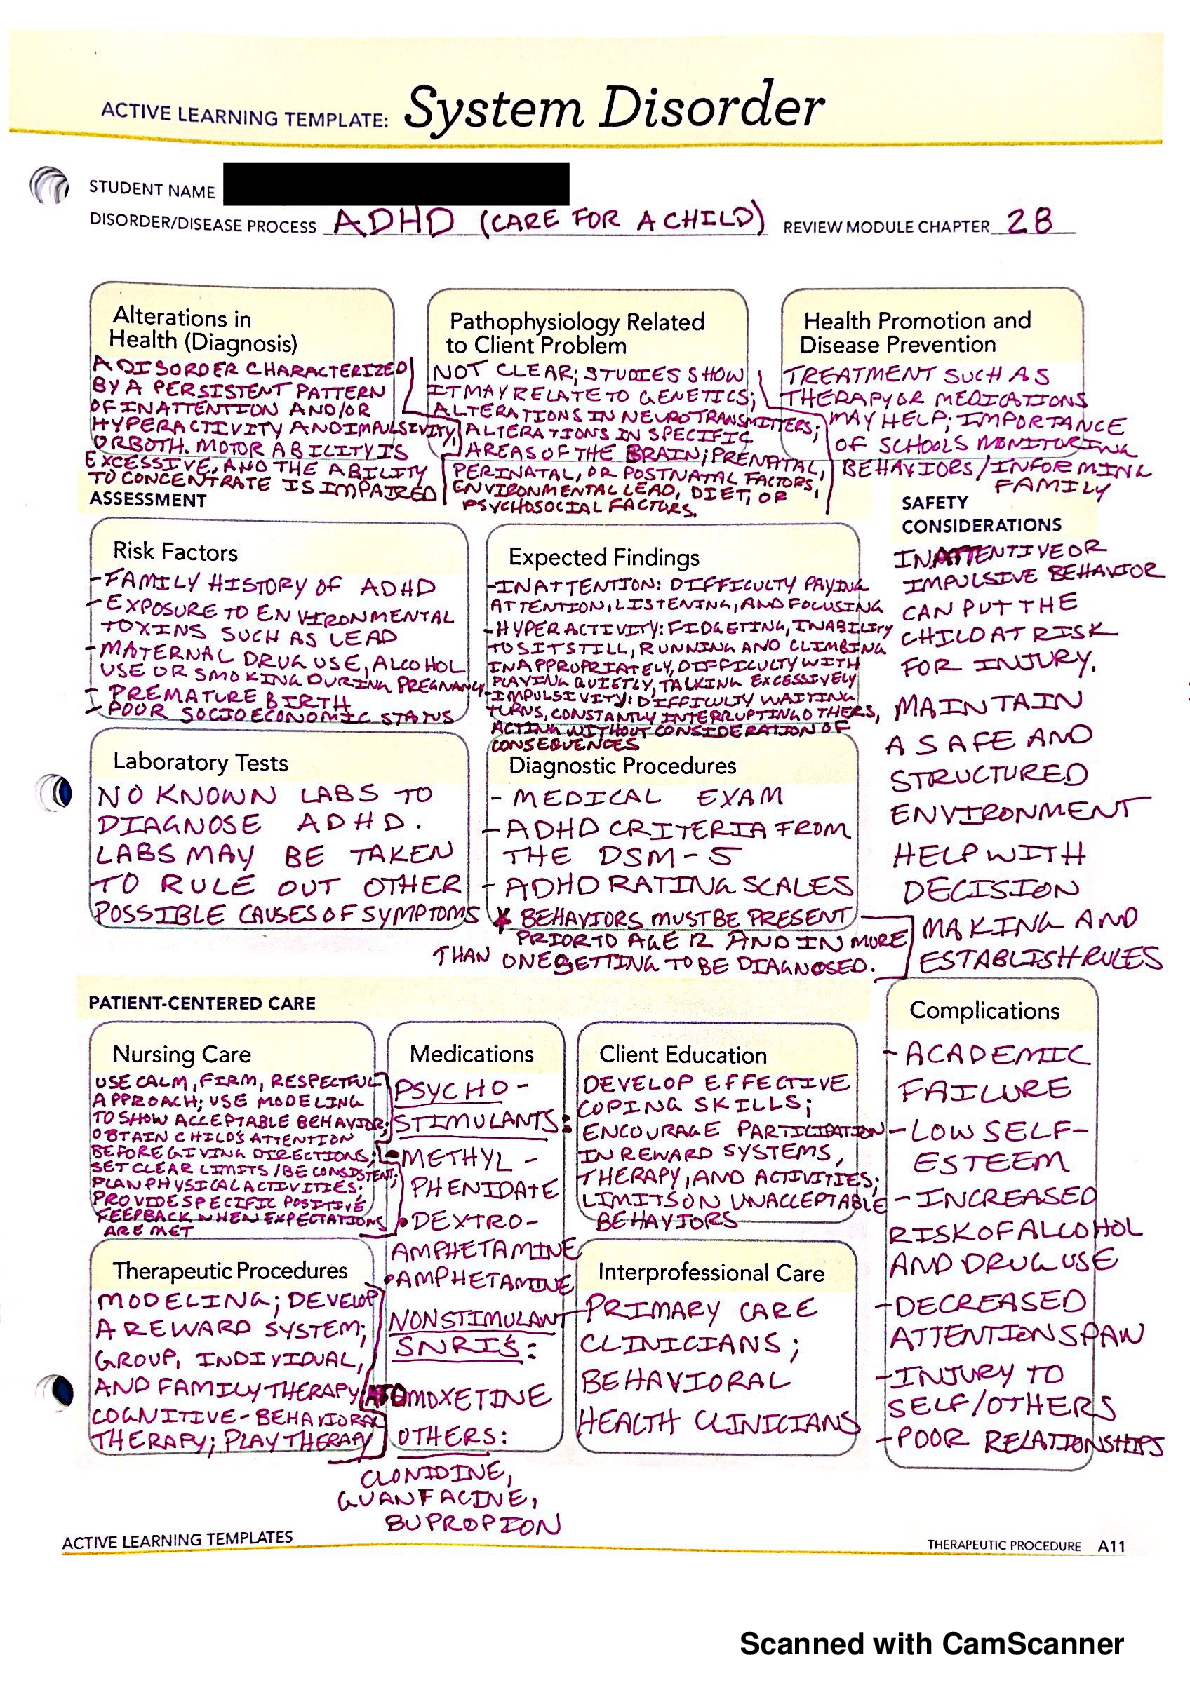 ACTIVE LEARNING TEMPLATE: System Disorder
STUDENT NAME
DISORDER/DISEASE PROCESS ADHD (CARE FOR A CHILD) REVIEW MODULE CHAPTER 28
Alterations in
Health (Diagnosis)
A DISORDER CHARACTERIZED
BY A PERSISTENT PATTERN
OF INATTENTION AND/OR
HYPERACTIVITY AND IMPULSIVITY
OR BOTH. MOTOR ABILITY IS
EXCESSIVE, AND THE ABILITY
TO CONCENTRATE IS IMPAIRED
Pathophysiology Related
to Client Problem
NOT CLEAR; STUDIES SHOW
IT MAY RELATE TO GENETICS;
ALTERATIONS IN NEUROTRANSMITTERS;
ALTERATIONS IN SPECIFIC
AREAS OF THE BRAIN; PRENATAL,
PERINATAL, OR POSTNATAL FACTORS,
ENVIRONMENTAL LEAD, DIET, OR
PSYCHOSOCIAL FACTORS.
Health Promotion and
Disease Prevention
TREATMENT SUCH AS
THERAPY OR MEDICATIONS
MAY HELP; IMPORTANCE
OF SCHOOLS MONITORING
BEHAVIORS/INFORMING
FAMILY
ASSESSMENT
SAFETY
CONSIDERATIONS
Risk Factors
-FAMILY HISTORY OF ADHD
-EXPOSURE TO ENVIRONMENTAL
TOXINS SUCH AS LEAD
-MATERNAL DRUG USE, ALCOHOL
USE OR SMOKING DURING PREGNANCY
-PREMATURE BIRTH
-POOR SOCIOECONOMIC STATUS
Expected Findings
-INATTENTION: DIFFICULTY PAYING
ATTENTION, LISTENING, AND FOCUSING
-HYPERACTIVITY: FIDGETING, INABILITY
TO SIT STILL, RUNNING AND CLIMBING
INAPPROPRIATELY, DIFFICULTY WITH
PLAYING QUIETLY, TALKING EXCESSIVELY
-IMPULSIVITY: DIFFICULTY WAITING
TURNS, CONSTANTLY INTERRUPTING OTHERS,
ACTING WITHOUT CONSIDERATION OF
CONSEQUENCES
INATTENTIVE OR
IMPULSIVE BEHAVIOR
CAN PUT THE
CHILD AT RISK
FOR INJURY.
MAINTAIN
A SAFE AND
STRUCTURED
ENVIRONMENT
HELP WITH
DECISION
MAKING AND
ESTABLISH RULES
Laboratory Tests
NO KNOWN LABS TO
DIAGNOSE ADHD.
LABS MAY BE TAKEN
TO RULE OUT OTHER
POSSIBLE CAUSES OF SYMPTOMS
Diagnostic Procedures
- MEDICAL EXAM
- ADHD CRITERIA FROM
THE DSM-5
- ADHD RATING SCALES
* BEHAVIORS MUST BE PRESENT
PRIOR TO AGE 12 AND IN MORE
THAN ONE SETTING TO BE DIAGNOSED.
PATIENT-CENTERED CARE
Nursing Care
USE CALM, FIRM, RESPECTFUL
APPROACH; USE MODELING
TO SHOW ACCEPTABLE BEHAVIOR;
OBTAIN CHILDS ATTENTION
BEFORE GIVING DIRECTIONS;
SET CLEAR LIMITS/BE CONSISTENT;
PLAN PHYSICAL ACTIVITIES;
PROVIDE SPECIFIC POSITIVE
FEEPBACK WHEN EXPECTATIONS
ARE MET
Medications
PSYCHO-
STIMULANTS:
•METHYL-
PHENIDATE
•DEXTRO-
AMPHETAMINE
•AMPHETAMINE
NONSTIMULANT
SNRIS:
ATOMOXETINE
OTHERS:
CLONIDINE,
GUANFACINE,
BUPROPION
Client Education
DEVELOP EFFECTIVE
COPING SKILLS;
ENCOURAGE PARTICIPATION
IN REWARD SYSTEMS,
THERAPY, AND ACTIVITIES;
LIMITS ON UNACCEPTABLE
BEHAVIORS
Complications
-ACADEMIC
FAILURE
-LOW SELF-
ESTEEM
-INCREASED
RISK OF ALCOHOL
AND DRUG USE
-DECREASED
ATTENTION SPAN
-INJURY TO
SELF/OTHERS
-POOR RELATIONSHIPS
Therapeutic Procedures
MODELING; DEVELOP
A REWARD SYSTEM;
GROUP, INDIVIDUAL,
AND FAMILY THERAPY
COGNITIVE-BEHAVIORAL
THERAPY; PLAY THERAPY
Interprofessional Care
PRIMARY CARE
CLINICIANS;
BEHAVIORAL
HEALTH CLINICIANS
ACTIVE LEARNING TEMPLATES
THERAPEUTIC PROCEDURE A11
Scanned with CamScanner